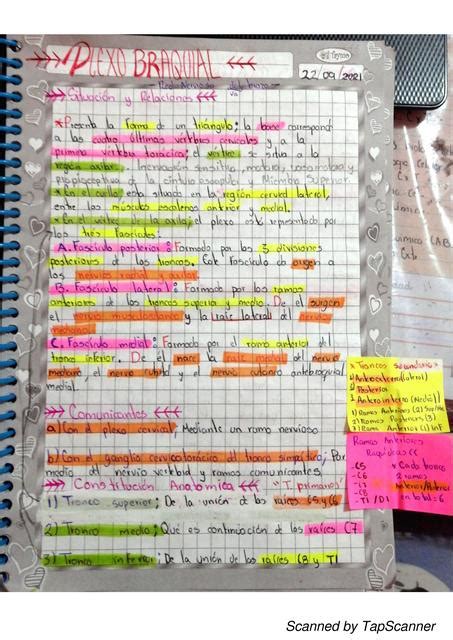 PLEXO BRAQUIAL
22/09/2021
Situación y Relaciones
*Presenta la forma de un triángulo; la base corresponde
a las cuatro últimas vertebras cervicales y a la
primera vertebra torácica; el vértice se situa a la
región axilar. Inervación sensitiva, motora,
Miembro Superior.
*En el cuello esta situado en la región cervical lateral,
entre los músculos escalenos anterior y medial.
*En el vértice de la axila; el plexo está representado por
los tres Fasciculos:
A. Fasciculo posterior: Formado por las 3 divisiones
posteriores de los troncos. Este Fasciculo da origen a
los nervios radial y axilar
B. Fasciculo lateral: Formado por los ramos
anteriores de los troncos superia y medio. De el surgen
el nervio musculocutaneo y la raiz lateral del nervio
mediano.
C. Fasciculo medial: Formado por el ramo anterior del
tronco inferior. De él nace la raiz medial del nervio
mediano, el nervio cubital y el nervio cutaneo antebraquial
medial.
Comunicantes
a) Con el plexo cervical; Mediante un ramo nervioso
b) Con el ganglio cervicotorácico del tronco simpático; Por
medio del nervio vertebral y ramos comunicantes
Constitución Anatómica "T. primarios"
1) Tronco superior; De la unión de las raices C5 y C6
2) Tronco medio; Que es continuación de las raíces C7
3) Tronco inferior; De la unión de las raíces C8 y T1
* Troncos secundarios *
Anteroexterno (lateral)
Posterior
Anterointerno (Medial)
1) Ramos Anteriores (2) Sup/Me
2) Ramos Posteriores (3)
3) Ramo Anterior (1) Inf
Ramas Anteriores
Raquideas
-C5 * Cada tronco
-C6 2 ramos
-C7 Anterior/Posterior
-C8
-T1/D1 en total: 6
Scanned by TapScanner